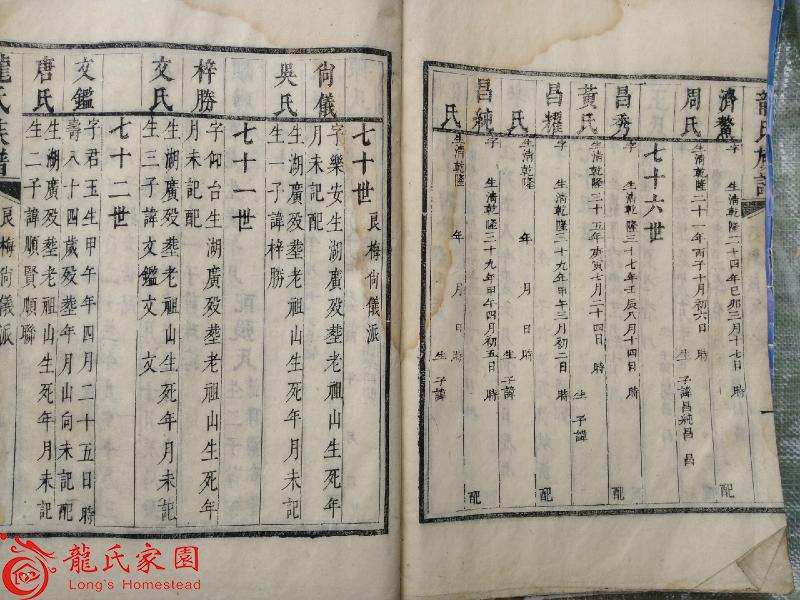 龍氏族譜
濟鰲
字 生清乾隆二十四年己卯三月十七日 時 配
周氏
生清乾隆二十一年丙子十月初六日 時 生 子諱昌純昌 昌
七十六世
昌秀
字 生清乾隆三十七年壬辰八月十四日 時 配
黃氏
生清乾隆三十五年庚寅七月二十四日 時 生 子諱
昌耀
字 生清乾隆三十九年甲午三月初二日 時 配
氏
生清乾隆 年 月 日 時 生 子諱
昌純
字 生清乾隆三十九年甲午四月初五日 時 配
氏
生清乾隆 年 月 日 時 生 子諱
七十世 良梅尙儀派
尙儀
字樂安生湖廣歿塟老祖山生死年
月未記配
吳氏
生湖廣歿塟老祖山生死年月未記
生一子諱梓勝
七十一世
梓勝
字仰台生湖廣歿塟老祖山生死年
月未記配
文氏
生湖廣歿塟老祖山生死年月未記
生三子諱文鑑文 文
七十二世
文鑑
字君玉生甲午年四月二十五日 時
壽八十四歲歿塟年月山向未記配
唐氏
生湖廣歿塟老祖山生死年月未記
生二子諱順賢順聯
龍氏族譜
良梅尙儀派
龍氏家園
Long's Homestead